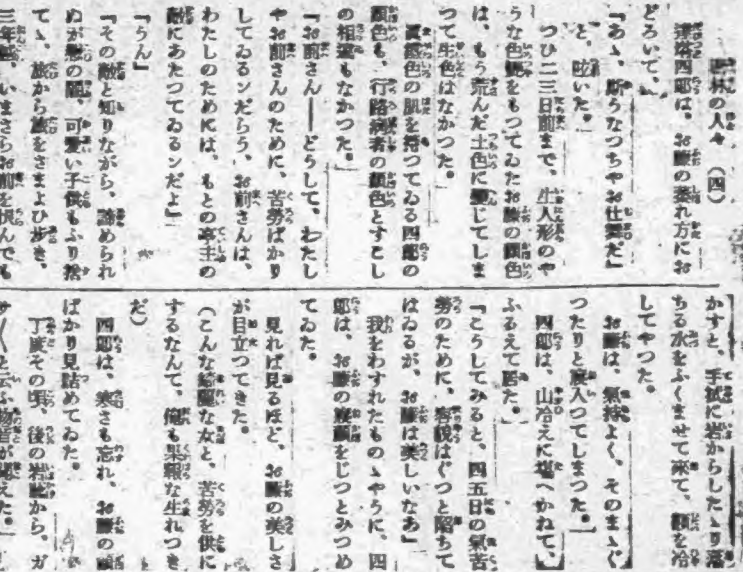 林の人々　（四）
四郎は、お藤の衰れ方にお
どろいて、
「あゝ、斯うなつちやお仕舞だ」
と、呟いた。
つひ二三日前まで、生人形のや
うな色艶をもつてゐたお藤の顔色
は、もう荒んだ土色に變じてしま
つて生色はなかつた。
色の肌を持つてゐる四郎の
顔色も、行路病者の顔色とすこし
の相違もなかつた。
「お前さん――どうして、わたし
やお前さんのために、苦勞ばかり
してゐるンだらう、お前さんは、
わたしのためには、もとの亭主の
敵にあたつてゐるンだよ」
「うん」
「その敵と知りながら、諦められ
ぬが戀の闇、可愛い子供もふり捨
てゝ、旅から旅をさまよひ歩き、
三年越、いまさらお前を恨んでも
かすと、手拭に岩からしたゝり落
ちる水をふくませて來て、顔を冷
してやつた。
お藤は、氣持よく、そのまゝぐ
つたりと寢入つてしまつた。
四郎は、山冷えに堪へかねて、
ふるえて居た。
「こうしてみると、四五日の氣苦
勞のために、容貌はぐつと陷ちて
はゐるが、お藤は美しいなあ」
我をわすれたものゝやうに、四
郎は、お藤の寢顔をじつとみつめ
てゐた。
見れば見るほど、お藤の美しさ
が目立つてきた。
（こんな綺麗な女と、苦勞を供に
するなんて、俺も果報な生れつき
だ）
四郎は、寒さも忘れ、お藤の顔
ばかり見詰めてゐた。
丁度その頃、後の岩から、ガ
サ〱と云ふ物音が聞えた。